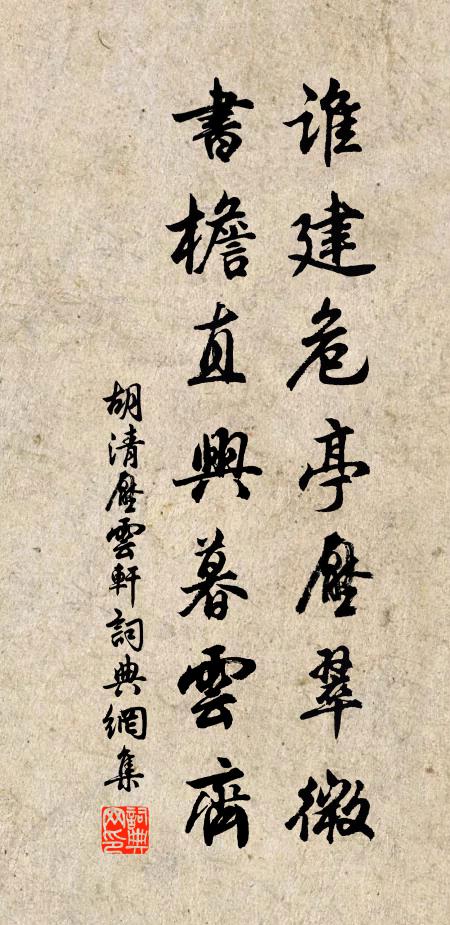 誰建危亭壓翠微
書檐直與暮雲齊
胡清壓雲軒詞典網集
詞典網印